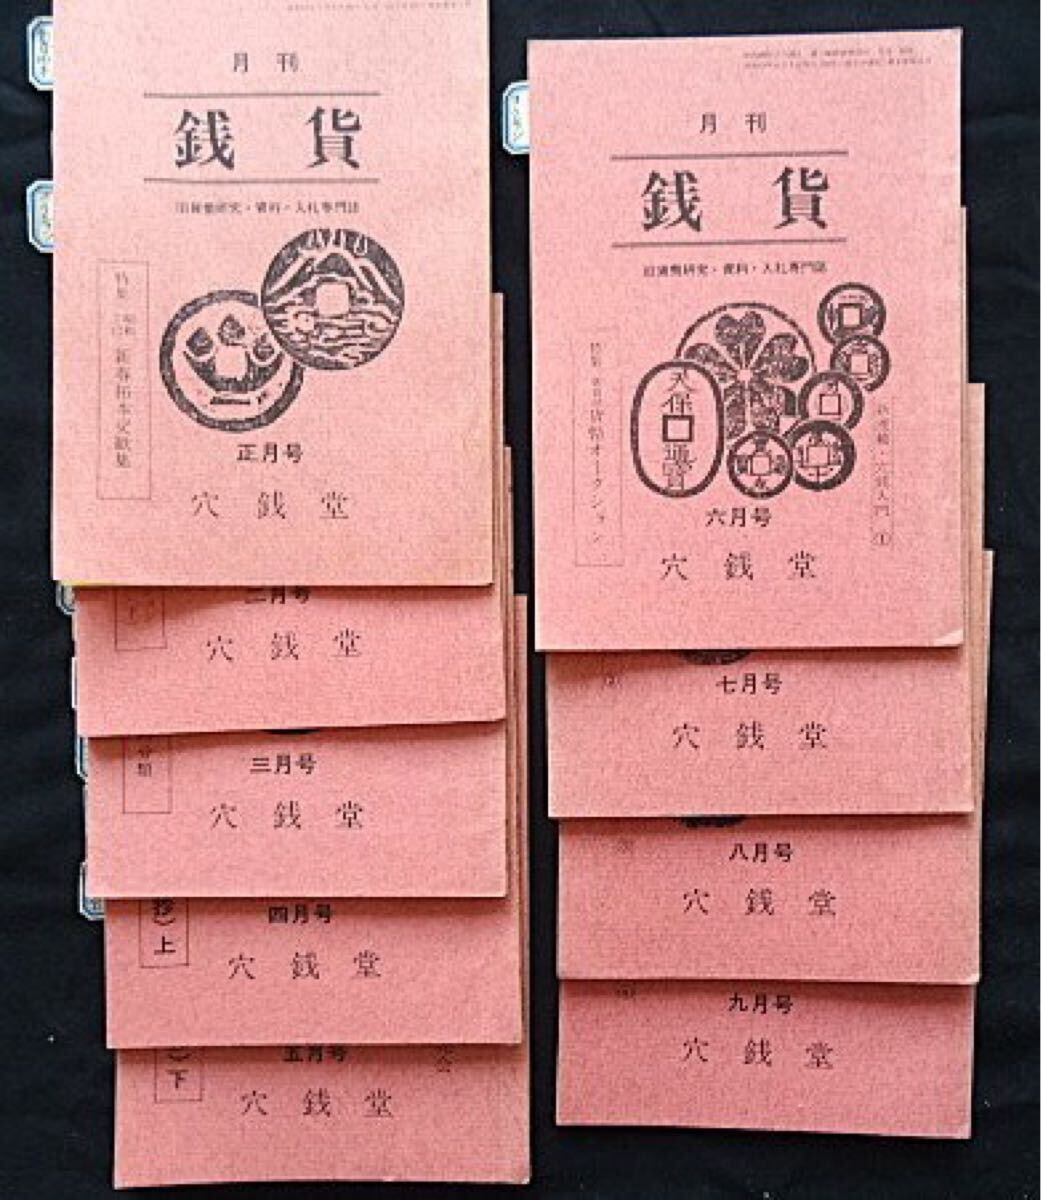 月刊
銭貨
旧貨幣研究・資料・入札専門誌
特集
新春拓本交歓集
正月号
穴銭堂
二月号
穴銭堂
分類
三月号
穴銭堂
抄)上
四月号
穴銭堂
)下
五月号
穴銭堂
月刊
銭貨
旧貨幣研究・資料・入札専門誌
特集
貨幣オークション
天保通寳
入門①
六月号
穴銭堂
七月号
穴銭堂
八月号
穴銭堂
九月号
穴銭堂